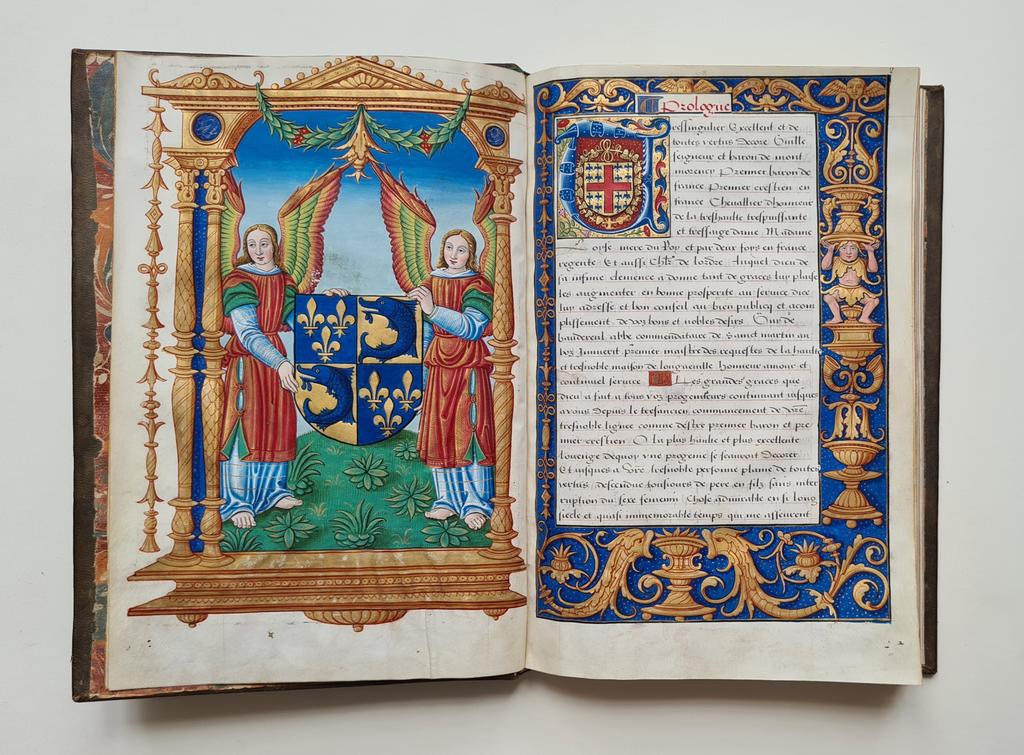 Prologue
Tressingulier Excellent et de
toutes vertus Decore Guille
seigneur et baron de mont
morency Premier baron de
france Premier crestien en
france Chevallier dhonneur
de la treshaulte trespuissante
et tressaige dame Madame
Loyse mere du Roy et par deux foys en france
regente Et aussi Chlr de lordre Auquel dieu de
sa infinie clemence a donne tant de graces luy plaise
les augmenter en bonne prosperite au service dice
luy adresse et bon conseil au bien publicq et acom
plissement de voz bons et nobles desirs
bauldereul abbe commendataire de Sainct martin au
boz premier maistre des requestes de la haulte
et tresnoble maison de longueville Honneur amour et
continuel service Les grandes graces que
dieu a fait a tous voz progeniteurs continuant iusques
a vous depuis le tresancien commancement de vostre
tresnoble ligne comme destre premier baron et pre
mier crestien O la plus haulte et plus excellente
louenge dequoy vne progenie se scauroit Decorer
Et iusques a Vostre tresnoble personne plaine de toutes
vertus descendue tousiours de pere en filz sans inter
ruption du sexe femenin Chose admirable en si long
siecle et quasi immemorable temps qui me asseurent